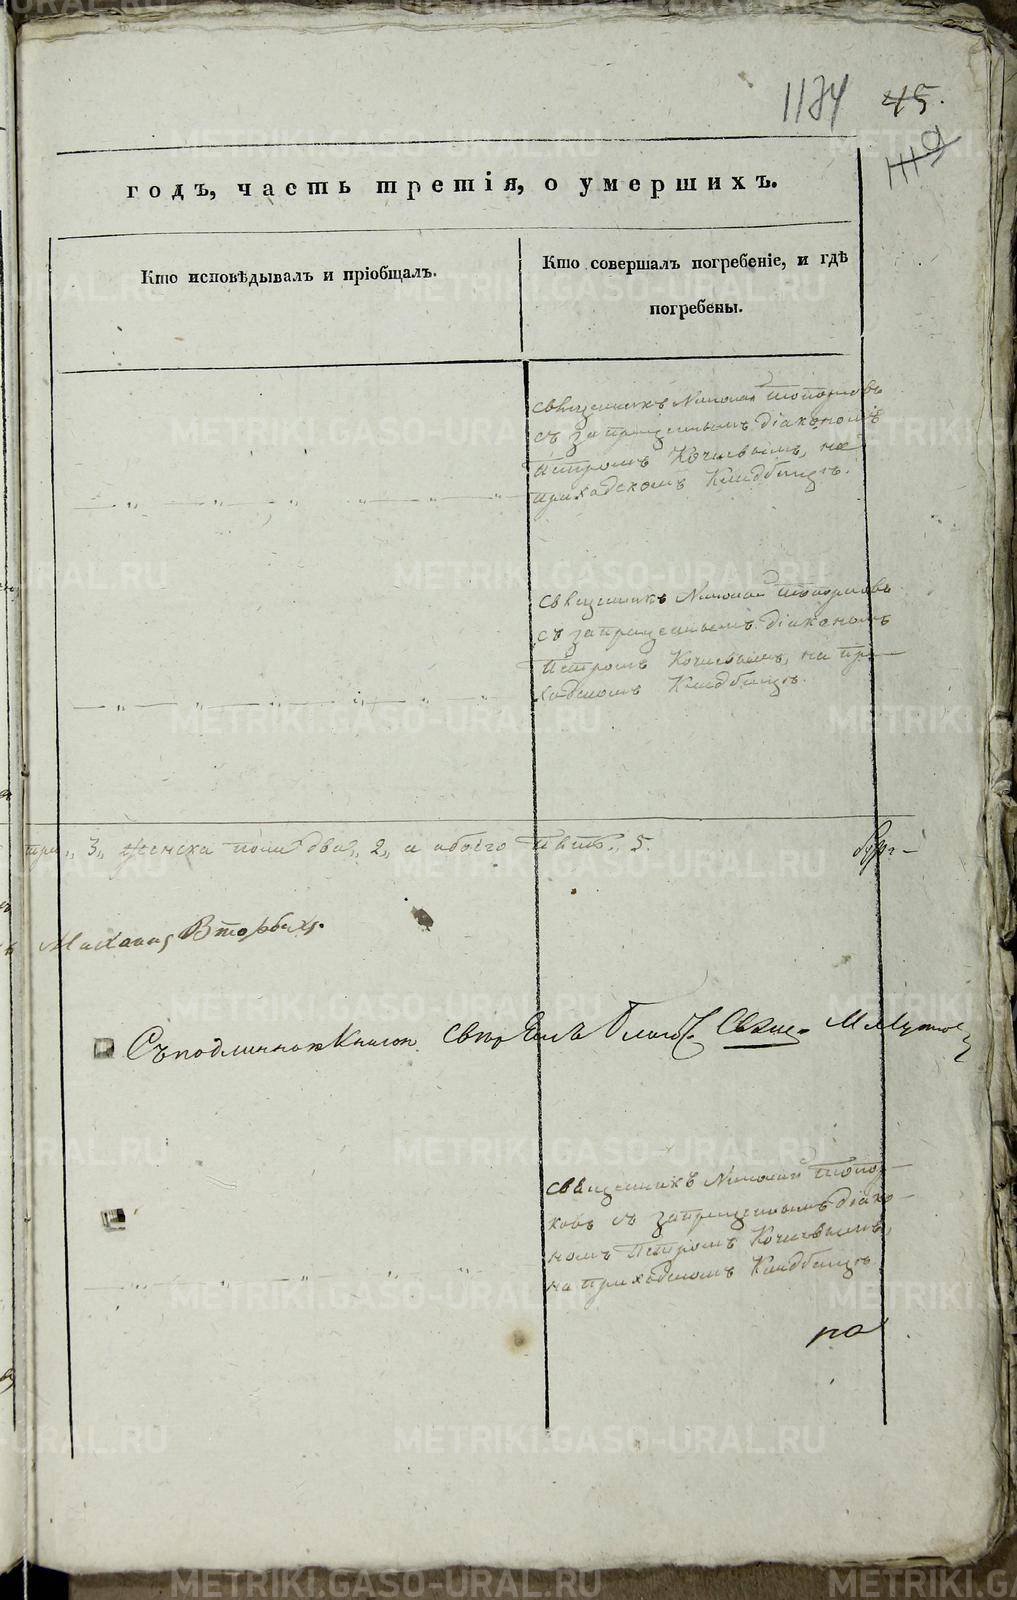 1134 45.
1119
годъ, часть третія, о умершихъ.
Кто исповѣдывалъ и пріобщалъ.
Кто совершалъ погребеніе, и гдѣ
погребены.
священникъ Николай Топорковъ
съ запрещеннымъ діакономъ
Петромъ Кочневымъ, на
приходскомъ Кладбищѣ.
священникъ Николай Топорковъ
съ запрещеннымъ діакономъ
Петромъ Кочневымъ, на при-
ходскомъ Кладбищѣ.
три „ 3, женска пола два „ 2, а обоего пять „ 5.
Вторыхъ.
Съ подлинною Книгою Свящ.
священникъ Николай Топор-
ковъ съ запрещеннымъ діако-
номъ Петромъ Кочневымъ,
на приходскомъ Кладбищѣ
по
METRIKI.GASO-URAL.RU